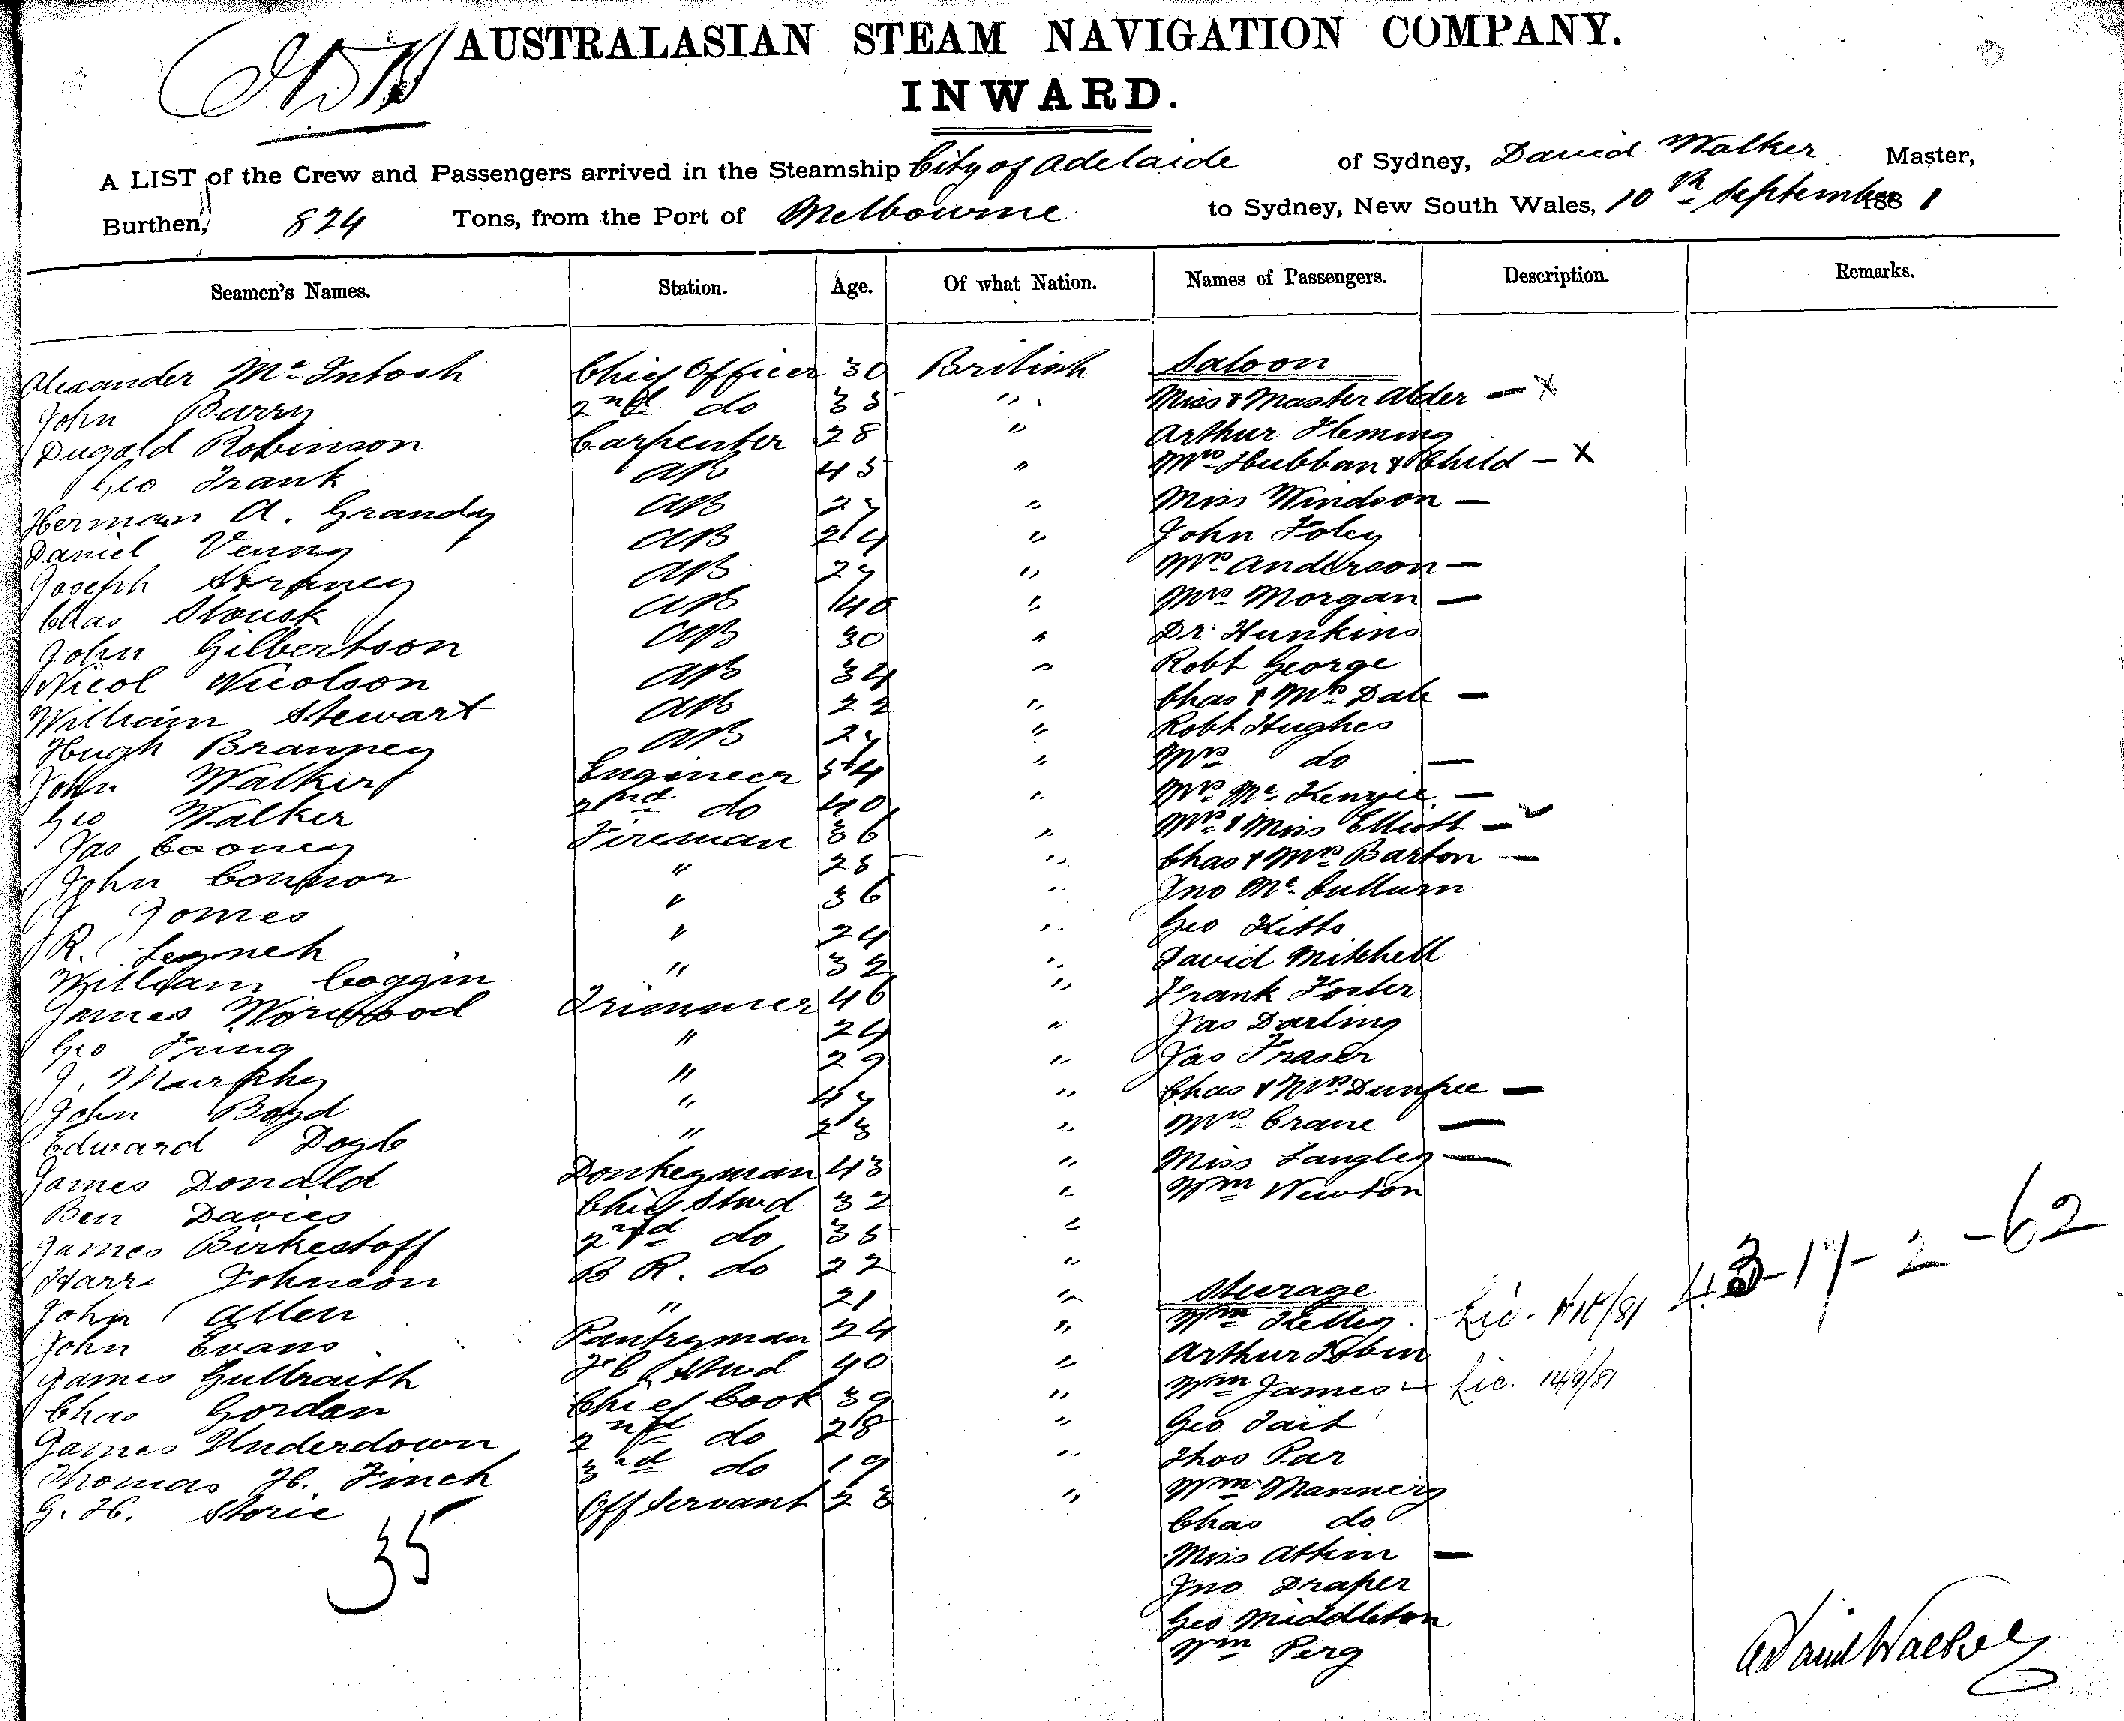 AUSTRALASIAN STEAM NAVIGATION COMPANY.
INWARD.
A LIST of the Crew and Passengers arrived in the Steamship City of Adelaide of Sydney, David Walker Master,
Burthen, 824 Tons, from the Port of Melbourne to Sydney, New South Wales, 10th September 1881
Seamen's Names. Station. Age. Of what Nation. Names of Passengers. Description. Remarks.
Alexander McIntosh Chief Officer 30 British Saloon
John Barry 2nd do 35 " Miss & Master Alder — x
Dugald Robinson Carpenter 28 " Arthur Fleming
Geo Frank AB 45 " Mrs Hubban & Child — x
Herman A. Grandy AB 27 " Miss Windson —
Daniel AB 24 " John Foley
Joseph AB 27 " Mrs Anderson —
Chas AB 40 " Mrs Morgan —
John Gilbertson AB 30 " Dr. Hunkins
Nicol Nicolson AB 34 " Robt George
William Stewart AB 22 " Chas & Mrs Dale —
Hugh Branney AB 27 " Robt Hughes
John Walker Engineer 54 " Mrs do —
Geo Walker 2nd do 40 " Mrs McKenzie —
Jas Cooney Fireman 36 " Mrs & Miss Elliott —
John Connor " 28 " Chas & Mrs Barton —
J James " 36 " Jno McCullum
R. Leynch " 24 " Geo Kitts
William Coggin " 32 " David Mitchell
James Norwood Trimmer 46 " Frank Foster
Geo " 24 " Jas Darling
J. Murphy " 29 " Jas Fraser
John Boyd " 47 " Chas & Mrs Dunfree —
Edward Doyle " 23 " Mrs Crane —
James Donald Donkeyman 43 " Miss Langley —
Ben Davies Chief Stwd 32 " Wm Newton
James Birkestoff 2nd do 35 "
Harr Johnson B R. do 22 "
John Allen " 21 " Steerage
John Evans Pantryman 24 " Wm Kelley
James Gullraith F C Stwd 40 " Arthur Tobin
Chas Gordon Chief Cook 39 " Wm James — Lic. 14/9/81
James Underdown 2nd do 28 " Geo Tait
Thomas H. Finch 3rd do 19 " Thos Par
G. H. Storie Off Servant 23 " Wm Mannery
Chas do
Miss Atkin —
Jno Draper
Geo Middleton
Wm Perg
35
43-17-2-62
David Walker